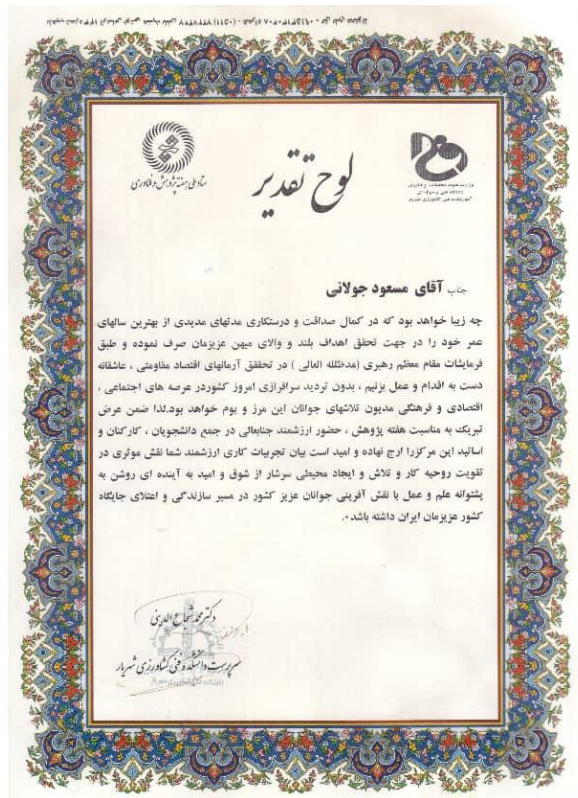 لوح تقدیر
ستاد ملی هفته پژوهش و فناوری
جناب آقای مسعود جولانی
چه زیبا خواهد بود که در کمال صداقت و درستکاری مدتهای مدیدی از بهترین سالهای
عمر خود را در جهت تحقق اهداف بلند و والای میهن عزیزمان صرف نموده و طبق
فرمایشات مقام معظم رهبری (مدظلله العالی ) در تحققق آرمانهای اقتصاد مقاومتی ، عاشقانه
دست به اقدام و عمل بزنیم ، بدون تردید سرافرازی امروز کشوردر عرصه های اجتماعی ،
اقتصادی و فرهنگی مدیون تلاشهای جوانان این مرز و بوم خواهد بود.لذا ضمن عرض
تبریک به مناسبت هفته پژوهش ، حضور ارزشمند جنابعالی در جمع دانشجویان ، کارکنان و
اساتید این مرکزرا ارج نهاده و امید است بیان تجربیات کاری ارزشمند شما نقش موثری در
تقویت روحیه کار و تلاش و ایجاد محیطی سرشار از شوق و امید به آینده ای روشن به
پشتوانه علم و عمل با نقش آفرینی جوانان عزیز کشور در مسیر سازندگی و اعتلای جایگاه
کشور عزیزمان ایران داشته باشد.
دکتر محمد شجاع الدینی
سرپرست دانشکده فنی کشاورزی شهریار